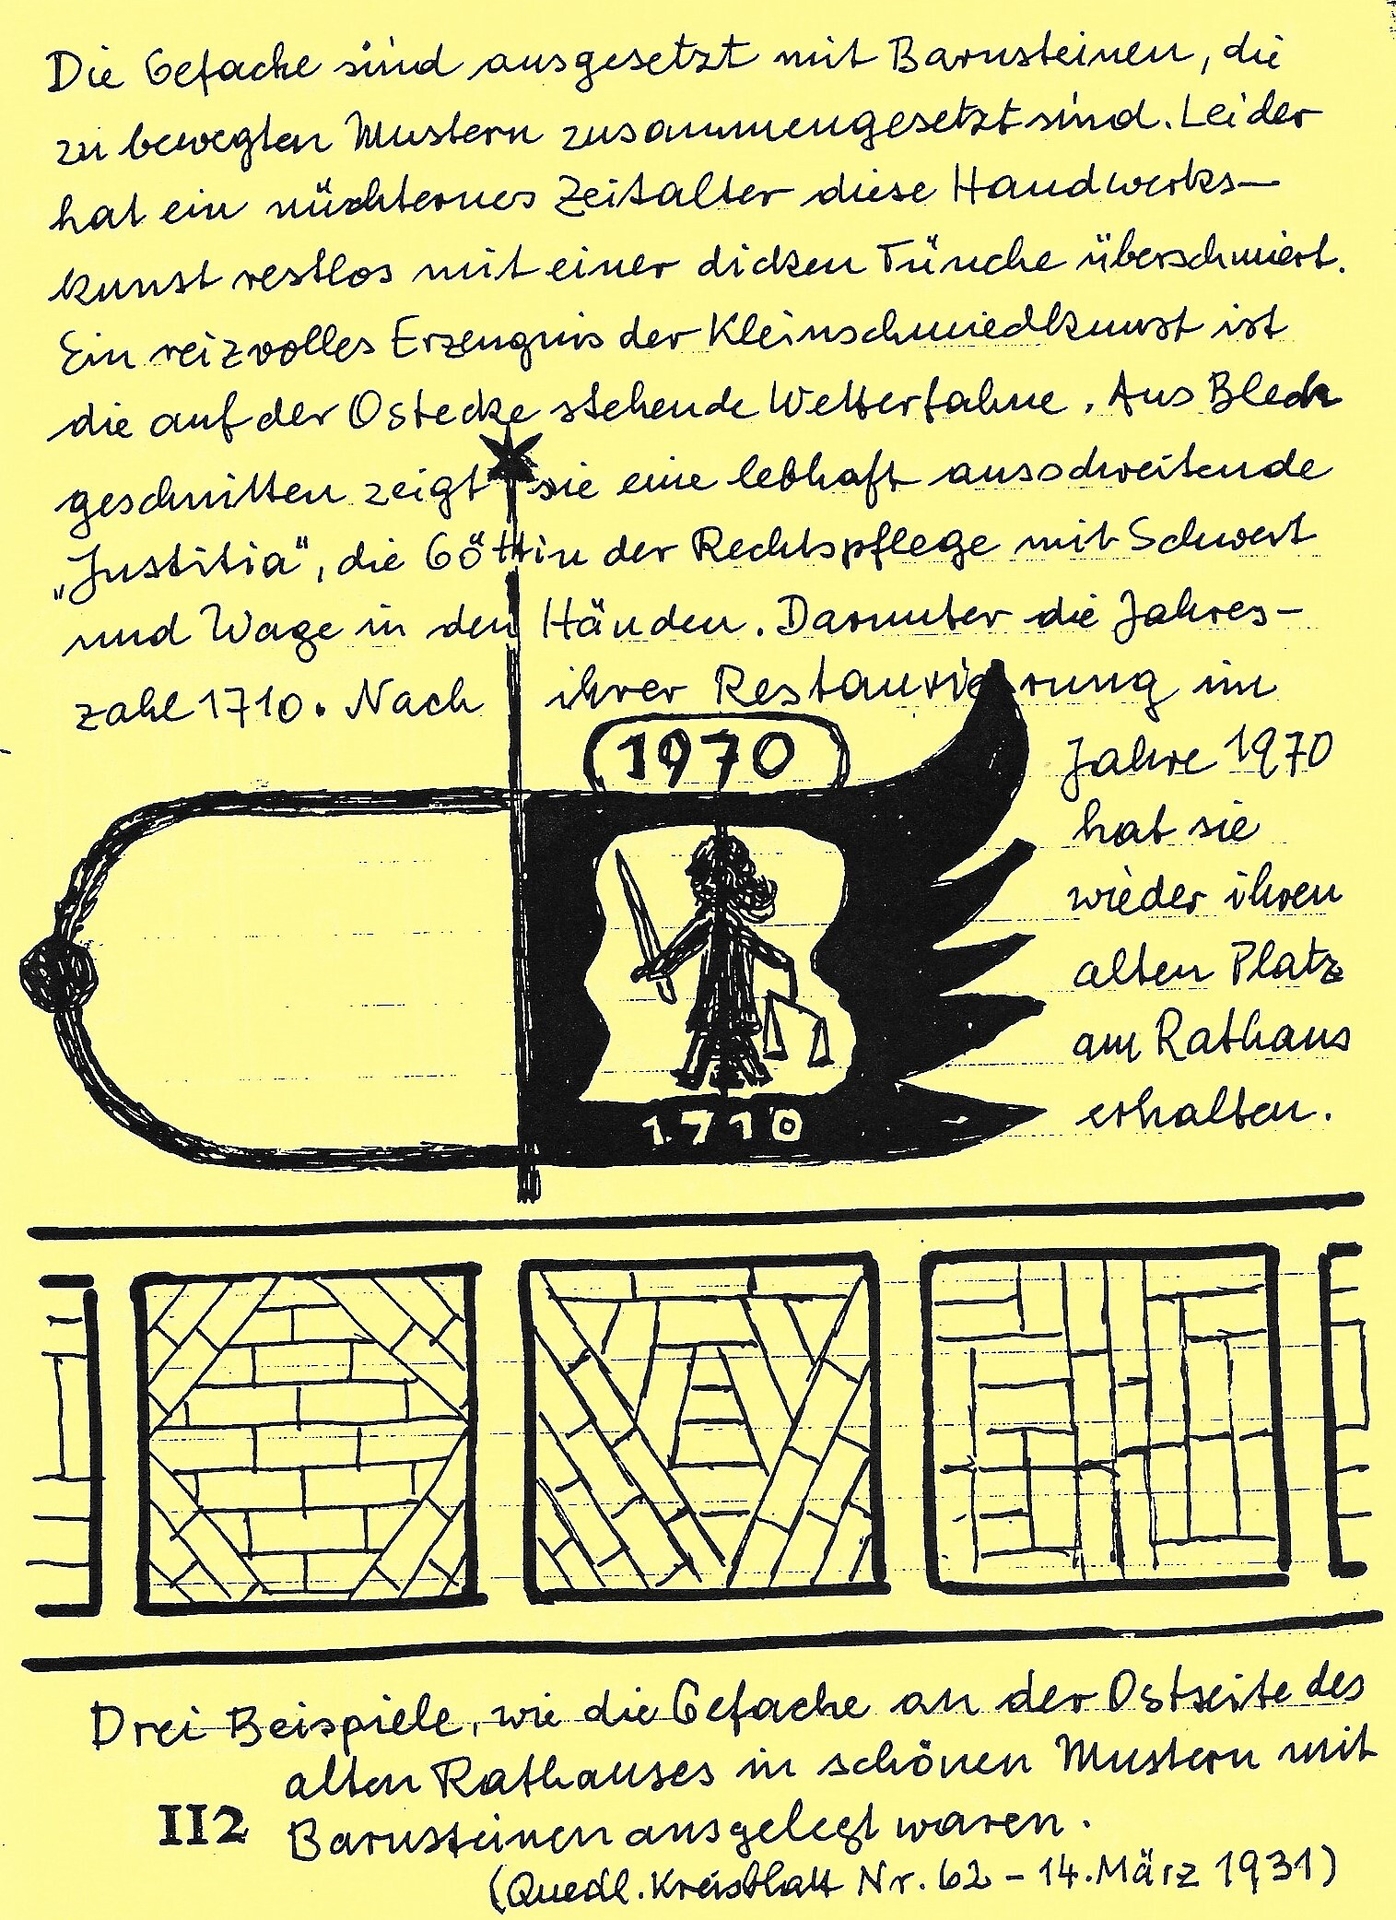 Die Gefache sind ausgesetzt mit Barnsteinen, die
zu bewegten Mustern zusammengesetzt sind. Leider
hat ein nüchternes Zeitalter diese Handwerks-
kunst restlos mit einer dicken Tünche überschmiert.
Ein reizvolles Erzeugnis der Kleinschmiedkunst ist
die auf der Ostecke stehende Wetterfahne. Aus Blech
geschnitten zeigt sie eine lebhaft ausschreitende
„Justitia“, die Göttin der Rechtspflege mit Schwert
und Wage in den Händen. Darunter die Jahres-
zahl 1710. Nach ihrer Restaurierung im
1970
Jahre 1970
hat sie
wieder ihren
alten Platz
am Rathaus
erhalten.
1710
Drei Beispiele, wie die Gefache an der Ostseite des
alten Rathauses in schönen Mustern mit
Barnsteinen ausgelegt waren.
112
(Quedl. Kreisblatt Nr. 62 - 14. März 1931)